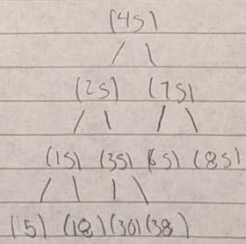 (45)
(25) (75)
(15) (35) (65) (85)
(15) (18) (30) (38)